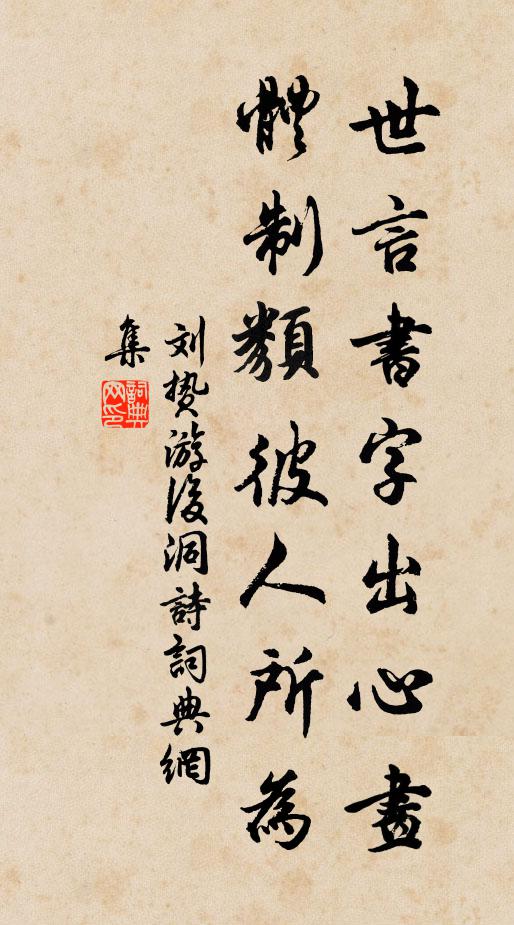 世言書字出心畫
體制類彼人所為
刘挚游後洞詩詞典網
集
詞典网印